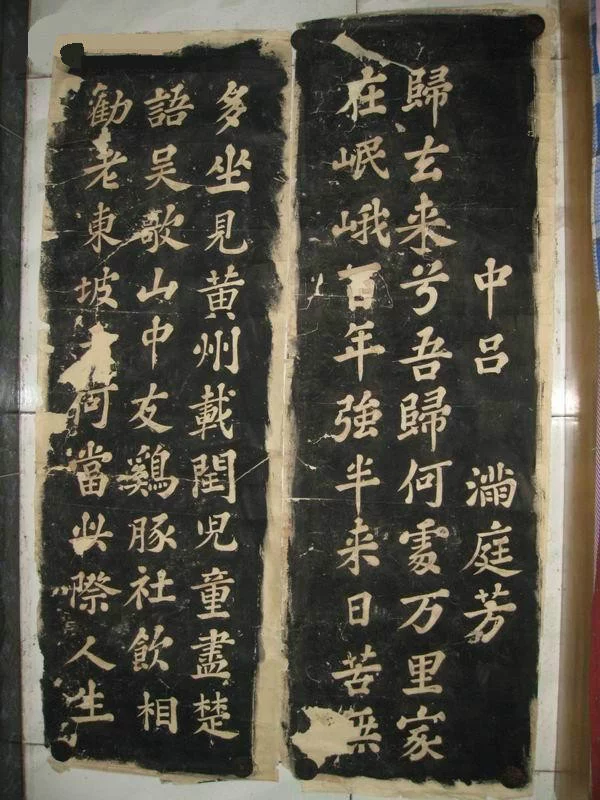 中呂 滿庭芳
歸去来兮吾歸何處万里家
在岷峨百年強半来日苦無
多坐見黃州載閏兒童盡楚
語吳歌山中友鷄豚社飲相
勸老東坡何當此際人生